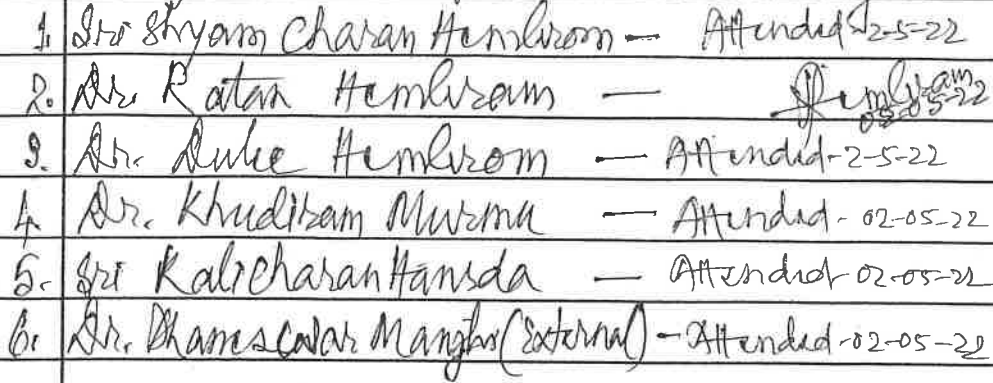 1. Sri Shyam Charan Hembrom — Attended 2-5-22
2. Dr. Ratan Hembram — Hembram 02-05-22
3. Dr. Duke Hembrom — Attended-2-5-22
4. Dr. Khudiram Murmu — Attended - 02-05-22
5. Sri Kalicharan Hansda — Attended 02-05-22
6. Dr. Dhaneswar Manjhi (External) - Attended -02-05-22